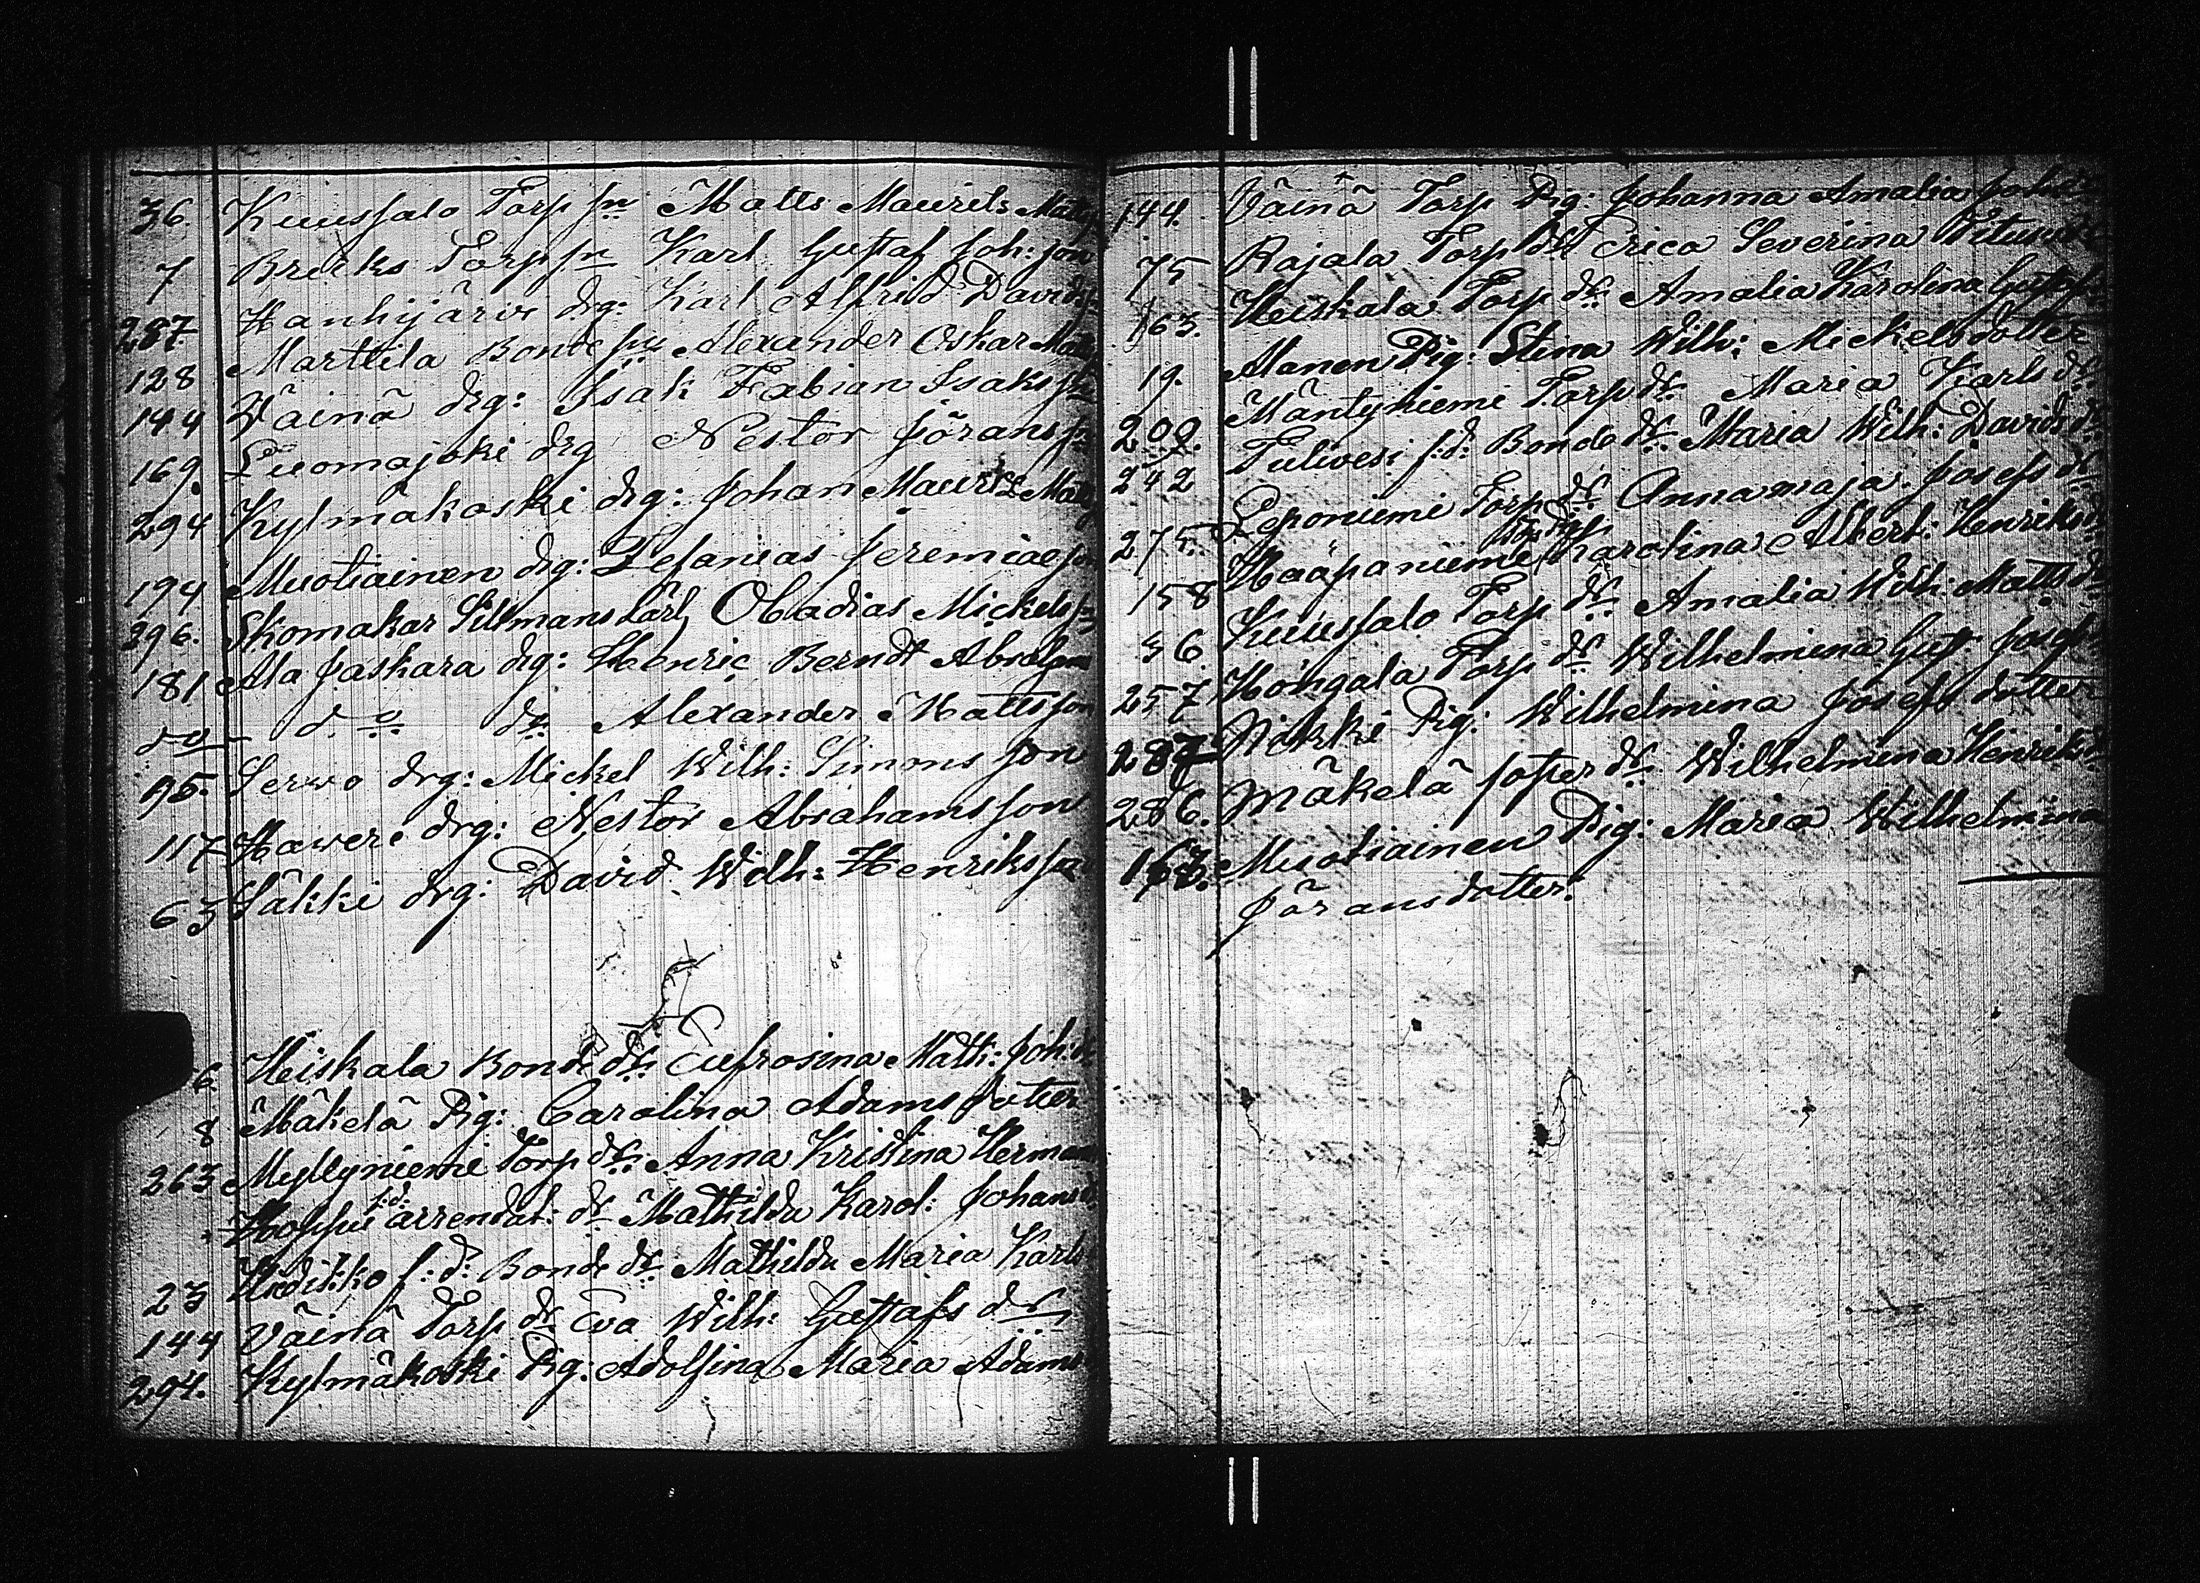 36. Kuussalo Torp sn Matts Maurits Matts
7 Brerks Torp sn Karl Gustaf Joh:son
287 Hanhijärvi drg: Karl Alfrid Davids
128 Marttila Bonde sn Alexander Oskar Matts
144 Väinä drg: Isak Fabian Isaks sn
169. Luomajoki drg Nestor Jörans sn
294 Kylmäkoski drg: Johan Maurits Matts
194 Muotiainen drg: Zefanias Jeremiae son
296. Skomakar Lillmans lärl Obadias Mickels sn
181 Ala Jaskara drg: Henric Berndt Absalom
do do dr: Alexander Mattsson
95. Serwo drg: Mickel Wilh: Simmsson
117 Haweri drg: Nestor Abrahamsson
63 Säkki drg: David Wilh: Henriks sn
6 Heiskala Bonde dr: Eufrosina Math: Joh:d
8 Mäkelä Pig: Carolina Adamsdotter
263 Myllyniemi Torp dr: Anna Kristina Hermans
Hoppu f:d: arrendat: dr Mathilda Karol: Johans d
23 f:d: Bonde dr Mathilda Maria Karls
144 Väinä Torp dr Eva Wilh: Gustafs dr
294. Kylmäkoski Pig: Adolfina Maria Adams
144. Väinä Torp Pig: Johanna Amalia
75 Rajala Torp dr Erica Severina
163. Heiskala Torp dr: Amalia Karolina Gustafs
19. Manen Pig: Stina Wilh: Mickelsdotter
200. Mäntyniemi Torp dr. Maria Karls dr
242 Tulivesi f:d: Bonde dr. Maria Wilh: Davids dr
275. Leponiemi Torp dr Annamaja Josefs dr
158 Haapaniemi Torp Pig Karolina Albert: Henriks
36. Kuussalo Torp dr. Amalia Wilh: Matts dr
257 Höngala Torp dr Wilhelmina Gust: Josefs
287 Nikki Pig: Wilhelmina Josefs dotter
286. Mäkelä soster dr. Wilhelmina Henriks
163. Muotiainen Pig: Maria Wilhelmina
Jöransdotter.